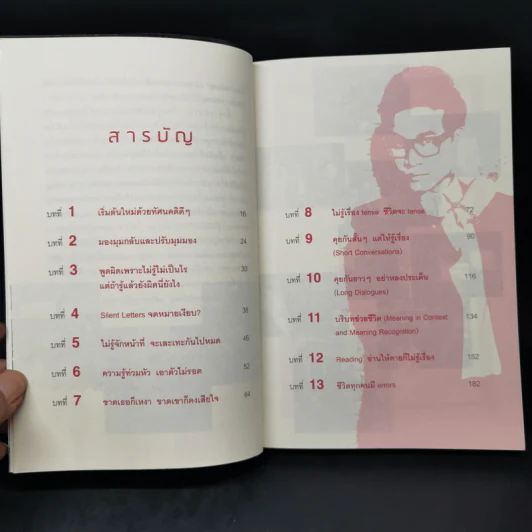 สารบัญ
บทที่ 1 เริ่มต้นใหม่ด้วยทัศนคติดีๆ 16
บทที่ 2 มองมุมกลับและปรับมุมมอง 24
บทที่ 3 พูดผิดเพราะไม่รู้ไม่เป็นไร 30
แต่ถ้ารู้แล้วยังผิดนี่ยังไง
บทที่ 4 Silent Letters จดหมายเงียบ? 38
บทที่ 5 ไม่รู้จักหน้าที่ จะเละเทะกันไปหมด 46
บทที่ 6 ความรู้ท่วมหัว เอาตัวไม่รอด 52
บทที่ 7 ขาดเธอก็เหงา ขาดเขาก็คงเสียใจ 64
บทที่ 8 ไม่รู้เรื่อง tense ชีวิตจะ tense 72
บทที่ 9 คุยกันสั้นๆ แต่ให้รู้เรื่อง 90
(Short Conversations)
บทที่ 10 คุยกันยาวๆ อย่าหลงประเด็น 116
(Long Dialogues)
บทที่ 11 บริบทช่วยชีวิต (Meaning in Context 134
and Meaning Recognition)
บทที่ 12 Reading อ่านให้ตายก็ไม่รู้เรื่อง 152
บทที่ 13 ชีวิตทุกคนมี errors 182